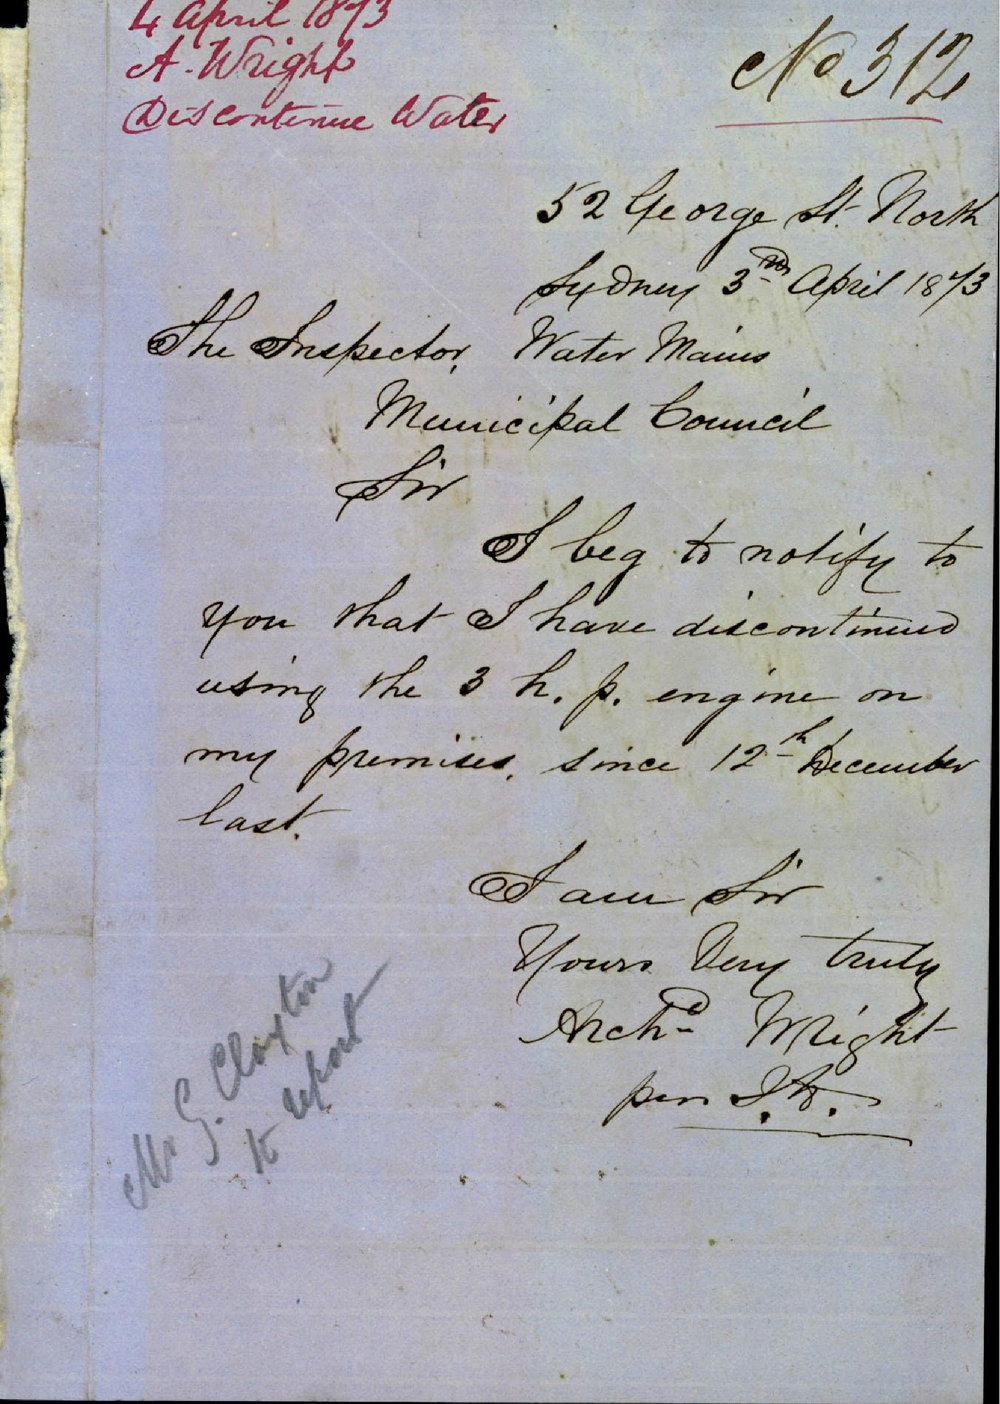 4 April 1873
A. Wright
Discontinue Water
No 312
52 George St. North
Sydney 3rd April 1873
The Inspector, Water Mains
Municipal Council
Sir
I beg to notify to
you that I have discontinued
using the 3 h. p. engine on
my premises, since 12th December
last.
I am Sir
Yours Very truly
Archd Wright
per
Mr G. Claxton
to report